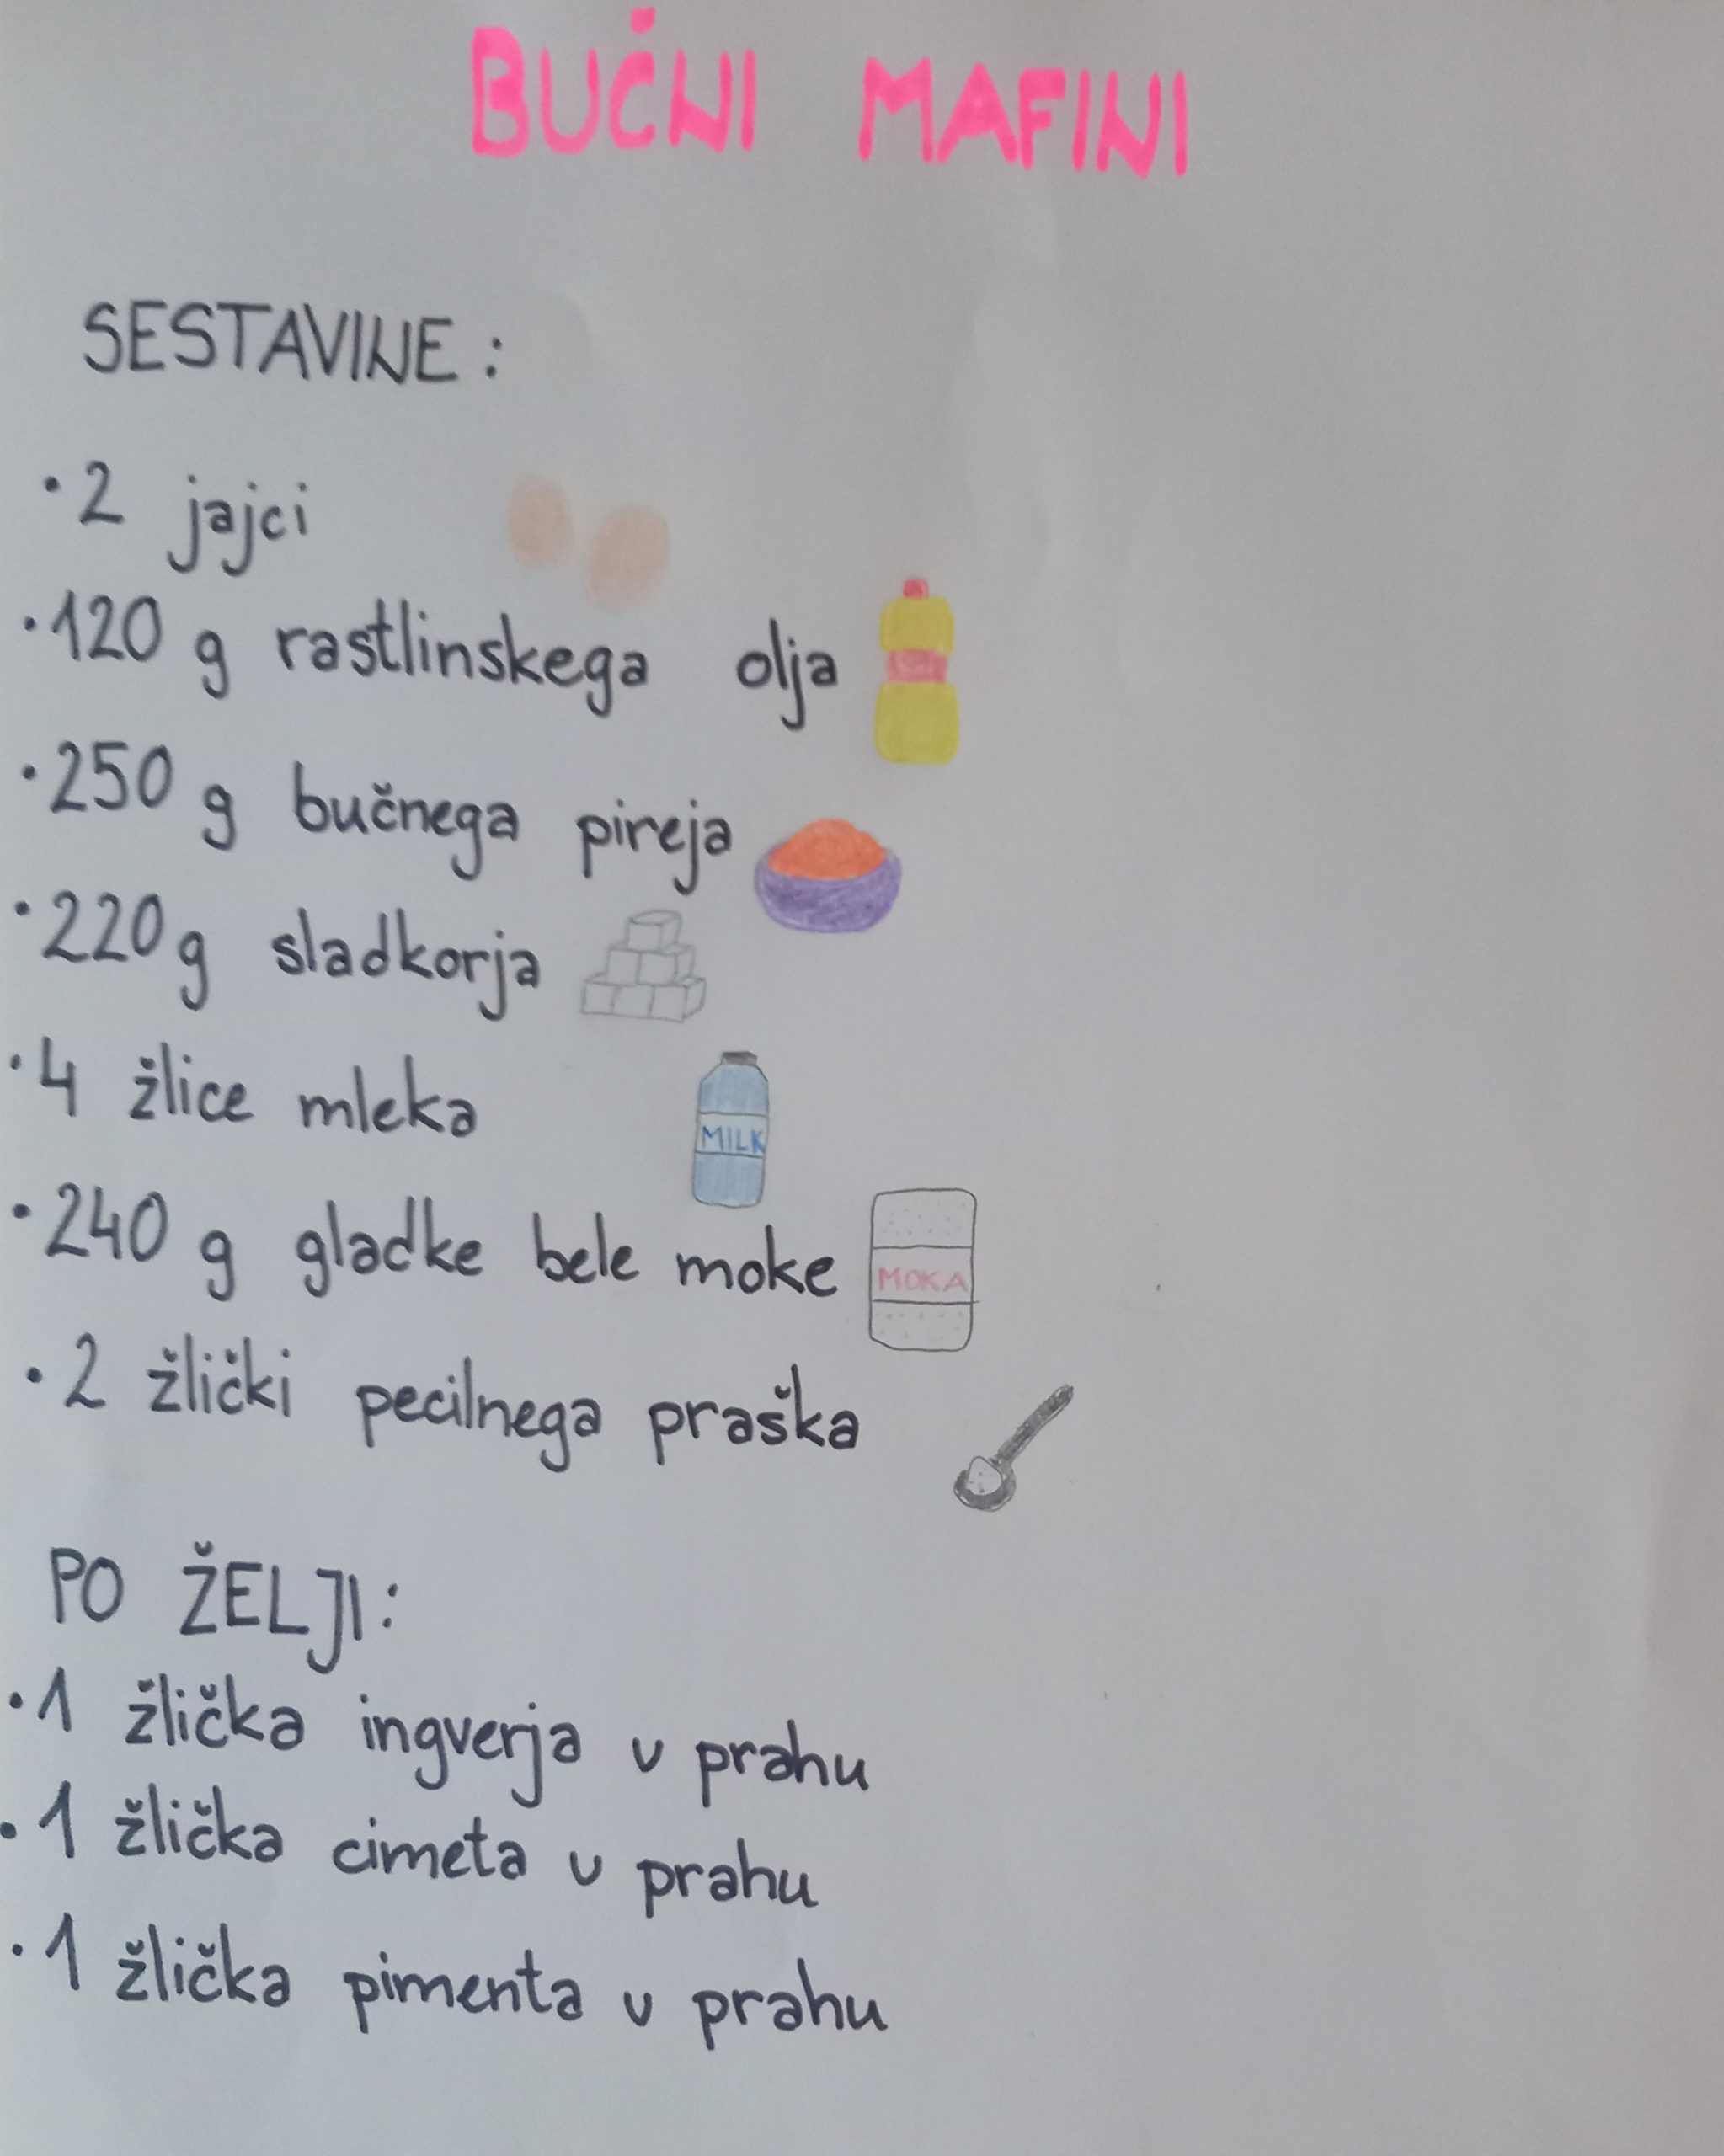 BUČNI MAFINI
SESTAVINE:
• 2 jajci
• 120 g rastlinskega olja
• 250 g bučnega pireja
• 220 g sladkorja
• 4 žlice mleka
MILK
• 240 g gladke bele moke
MOKA
• 2 žlički pecilnega praška
PO ŽELJI:
• 1 žlička ingverja v prahu
• 1 žlička cimeta v prahu
• 1 žlička pimenta v prahu